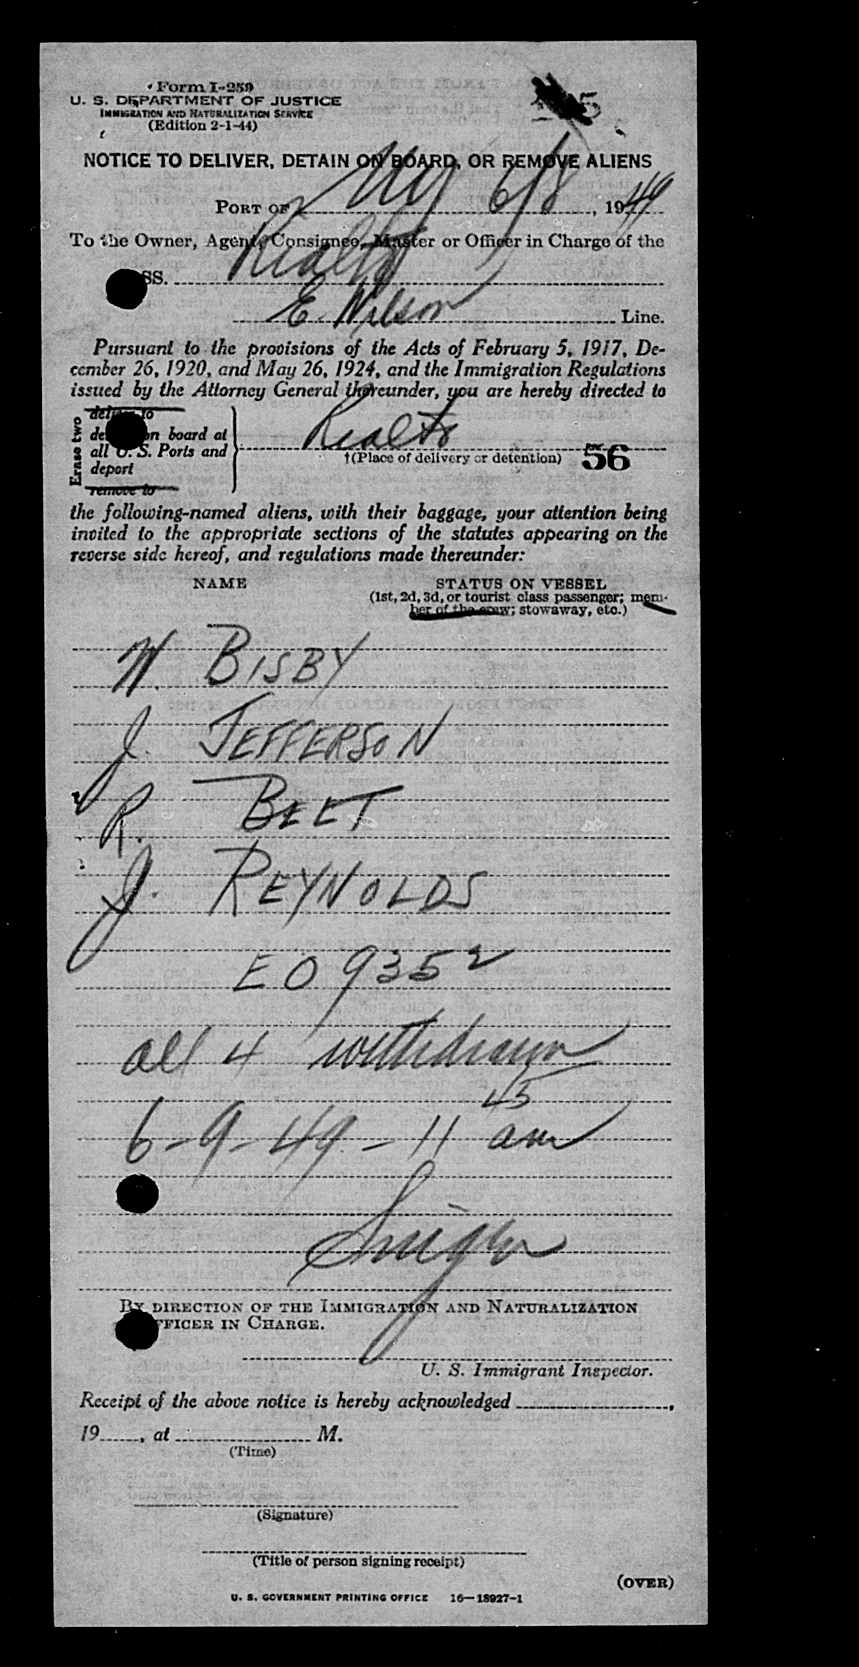 Form I-259
U. S. DEPARTMENT OF JUSTICE
IMMIGRATION AND NATURALIZATION SERVICE
(Edition 2-1-44)
NOTICE TO DELIVER, DETAIN ON BOARD, OR REMOVE ALIENS
PORT OF NY 6/8, 1949
To the Owner, Agent, Consignee, Master or Officer in Charge of the
SS. Rialto
E. Wilson Line.
Pursuant to the provisions of the Acts of February 5, 1917, De-
cember 26, 1920, and May 26, 1924, and the Immigration Regulations
issued by the Attorney General thereunder, you are hereby directed to
Erase two
deliver to
on board at
all U. S. Ports and
deport
remove to
Rialto
†(Place of delivery or detention) 56
the following-named aliens, with their baggage, your attention being
invited to the appropriate sections of the statutes appearing on the
reverse side hereof, and regulations made thereunder:
NAME STATUS ON VESSEL
(1st, 2d, 3d, or tourist class passenger; mem-
ber of the crew; stowaway, etc.)
W. BISBY
J. JEFFERSON
R. BEET
J. REYNOLDS
EO 9352
all 4 withdrawn
6-9-49-11 45 am
BY DIRECTION OF THE IMMIGRATION AND NATURALIZATION
OFFICER IN CHARGE.
U. S. Immigrant Inspector.
Receipt of the above notice is hereby acknowledged ,
19 , at M.
(Time)
(Signature)
(Title of person signing receipt)
(OVER)
U. S. GOVERNMENT PRINTING OFFICE 16—18927-1